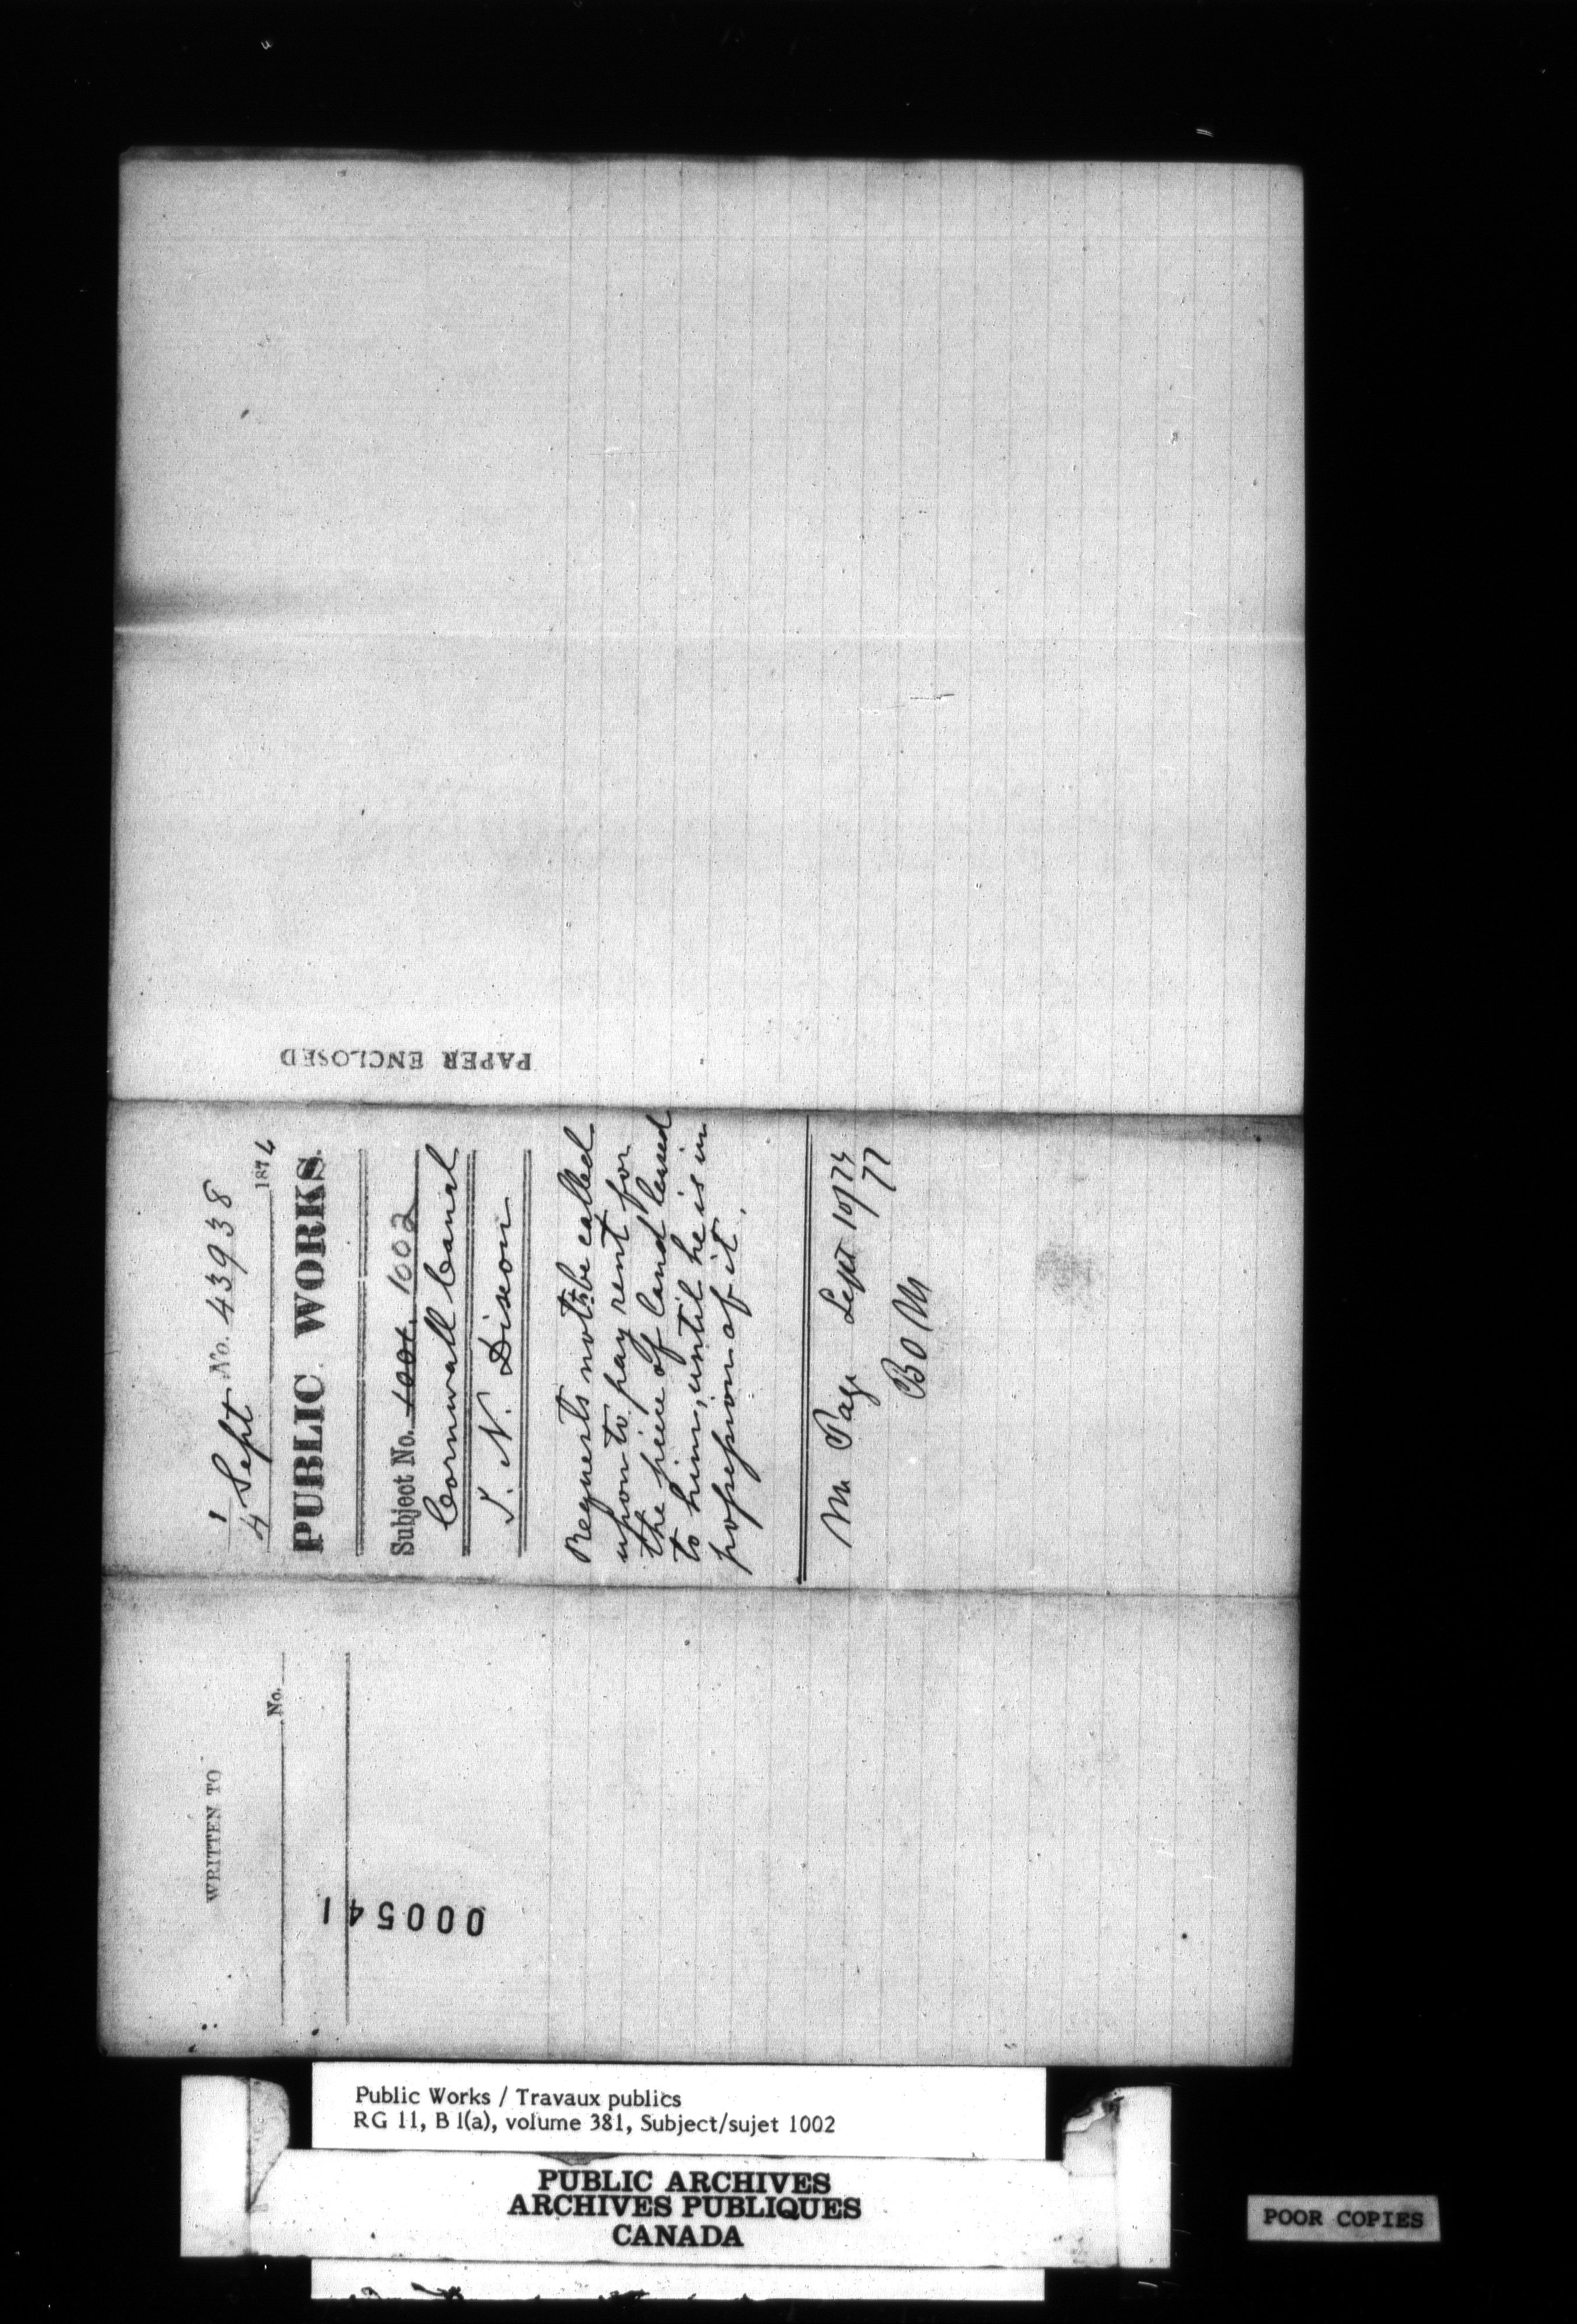 PAPER ENCLOSED
1 No. 43938
4 Sept 1874
PUBLIC WORKS.
Subject No. 1001. 1002
Cornwall Canal
T. N. Dixon
Requests not to be called
upon to pay rent for
the piece of land leased
to him, until he is in
possession of it.
Mr Page Sept 10/74
77
WRITTEN TO
No.
000541
Public Works / Travaux publics
RG 11, B 1(a), volume 381, Subject/sujet 1002
PUBLIC ARCHIVES
ARCHIVES PUBLIQUES
CANADA
POOR COPIES